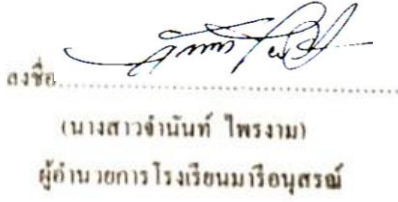 ลงชื่อ
(นางสาวจำนันท์ ไพรงาม)
ผู้อำนวยการโรงเรียนมารีอนุสรณ์